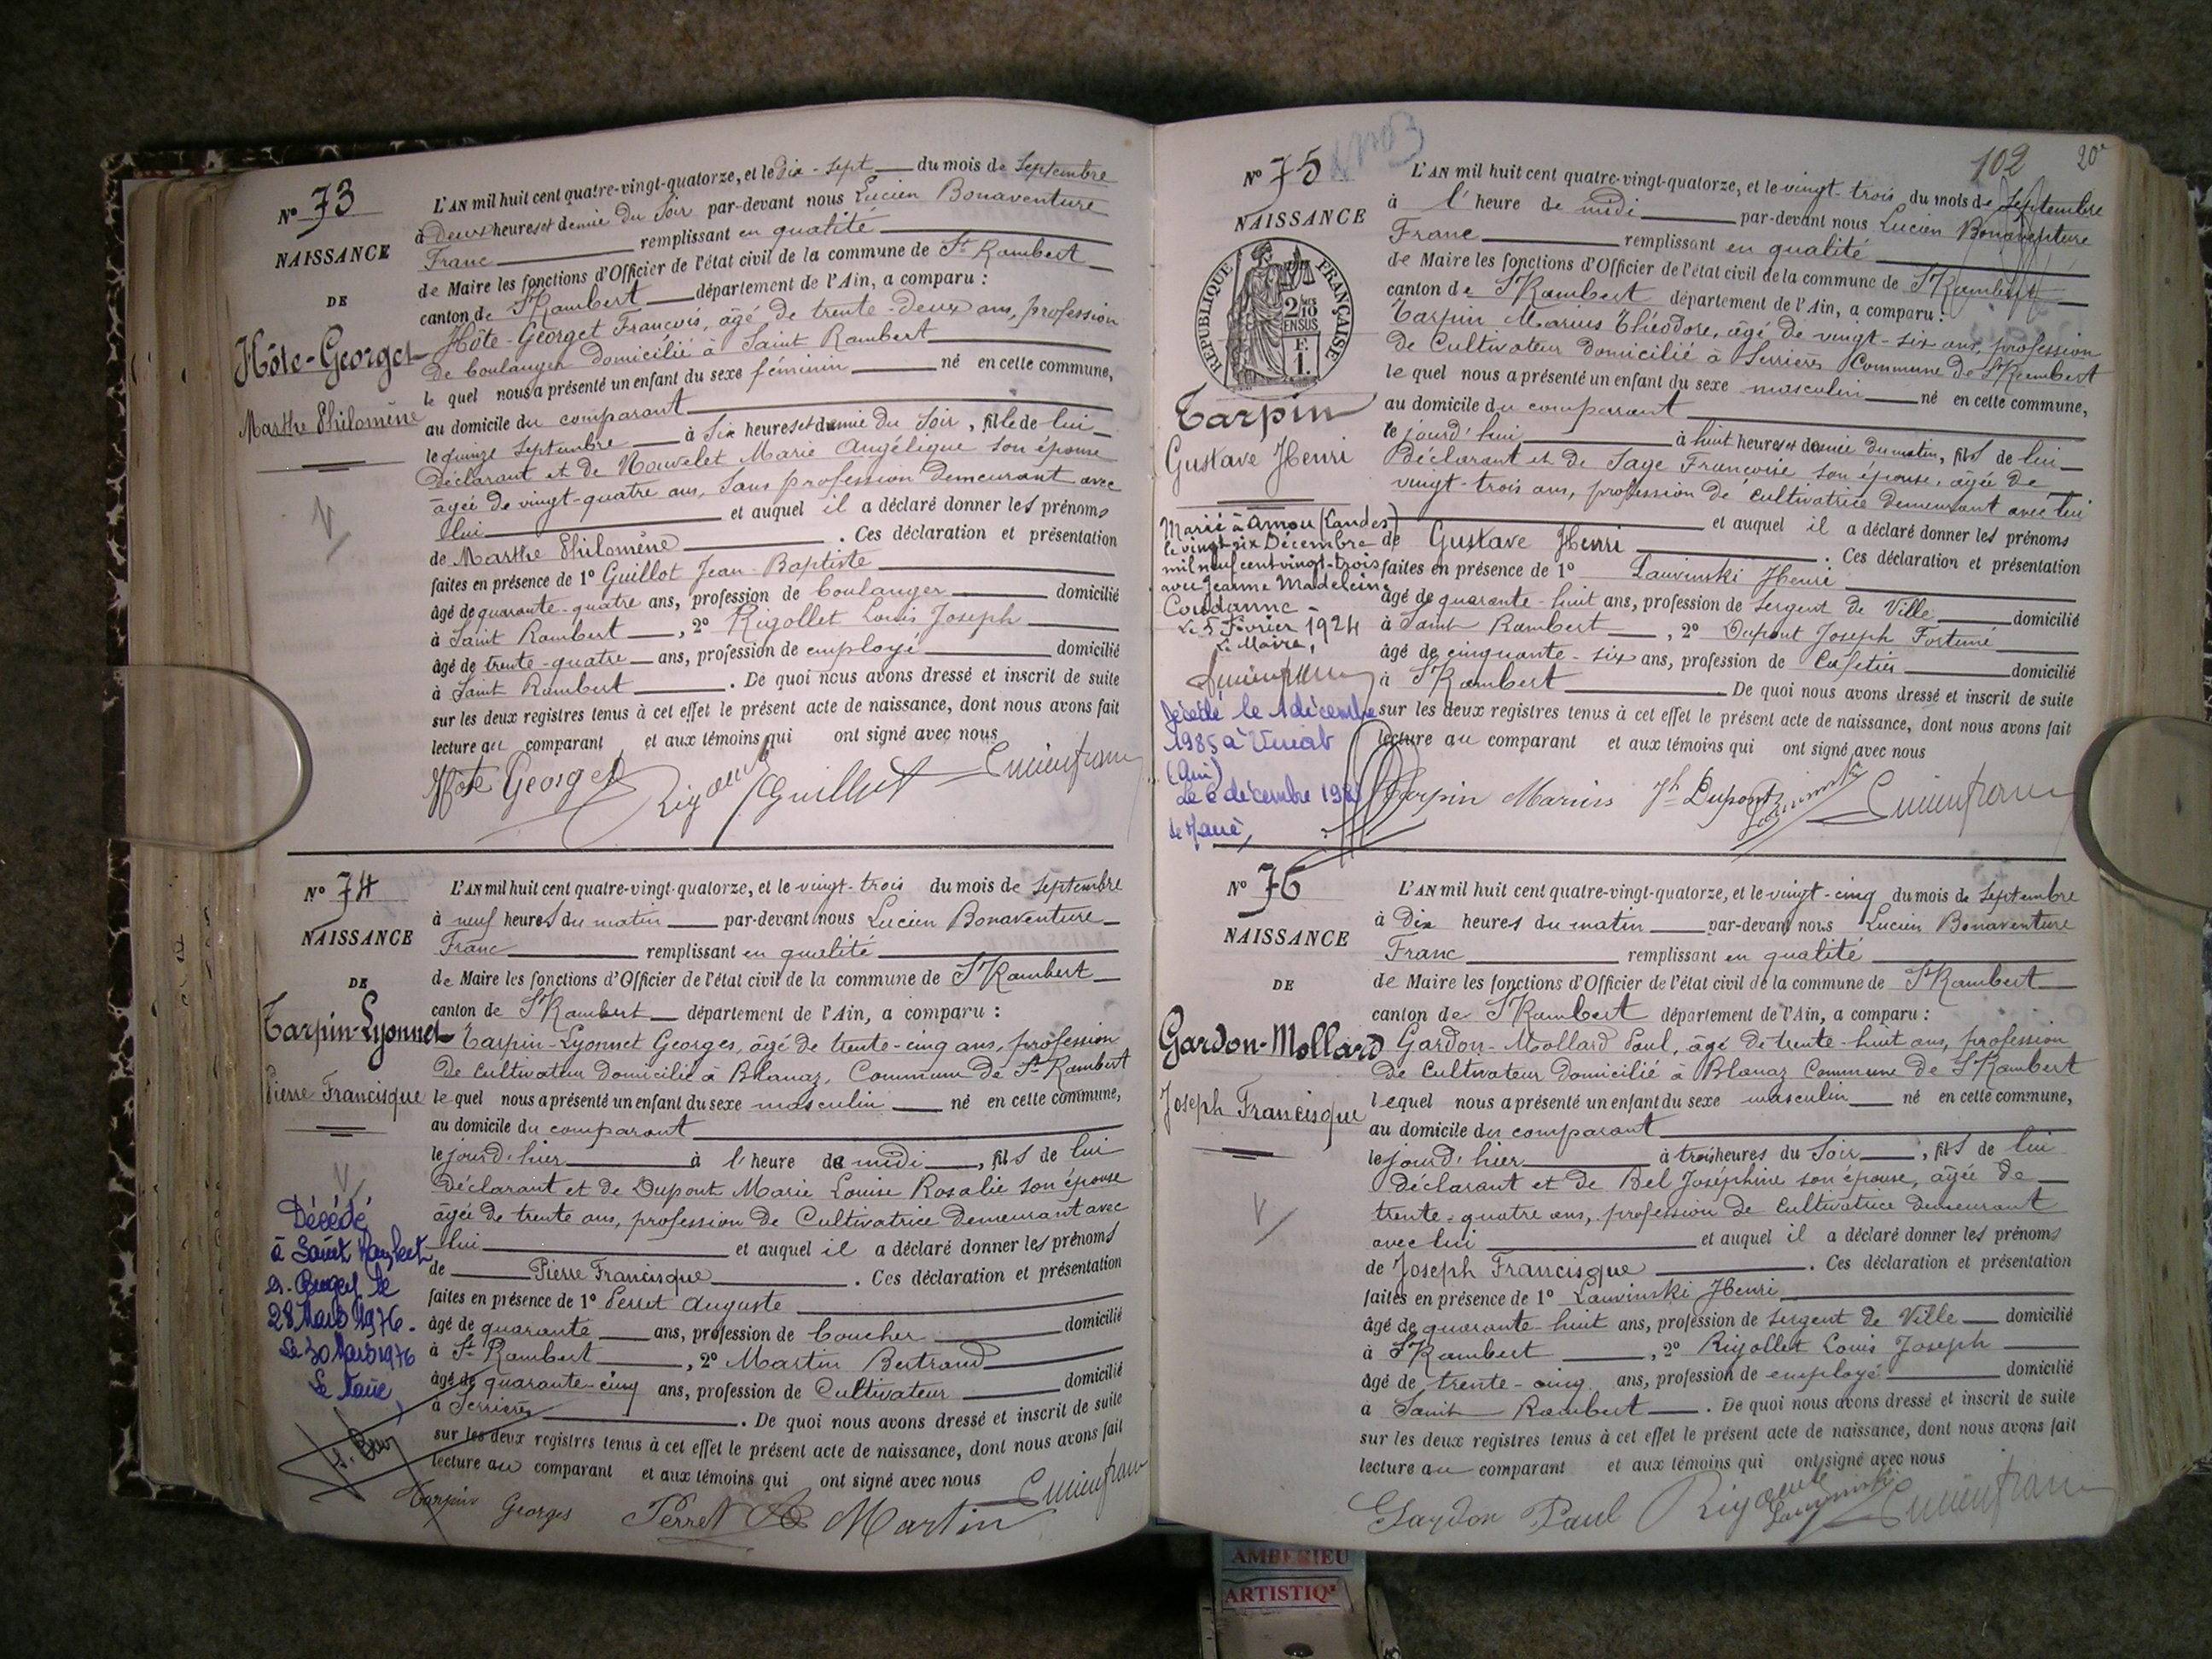 N° 73
NAISSANCE
DE
Hôte-Georget
Marthe Philomène
L'AN mil huit cent quatre-vingt-quatorze, et le Dix-sept du mois de Septembre
à Deux heures et demie du Soir par-devant nous Lucien Bonaventure
Franc remplissant en qualité
de Maire les fonctions d'Officier de l'état civil de la commune de St Rambert
canton de St Rambert département de l'Ain, a comparu :
Hôte-Georget François, âgé de trente-deux ans, profession
De boulanger domicilié à Saint Rambert
le quel nous a présenté un enfant du sexe féminin né en cette commune,
au domicile du comparant
le quinze Septembre à Six heures et demie du Soir, fille de lui
Déclarant et de Nouvelet Marie Angélique son épouse
âgée de vingt-quatre ans, Sans profession demeurant avec
lui et auquel il a déclaré donner les prénoms
de Marthe Philomène. Ces déclaration et présentation
faites en présence de 1° Guillot Jean-Baptiste
âgé de quarante-quatre ans, profession de boulanger domicilié
à Saint Rambert, 2° Rigollet Louis Joseph
âgé de trente-quatre ans, profession de employé domicilié
à Saint Rambert. De quoi nous avons dressé et inscrit de suite
sur les deux registres tenus à cet effet le présent acte de naissance, dont nous avons fait
lecture au comparant et aux témoins qui ont signé avec nous
Hôte Georget Guillot
N° 74
NAISSANCE
DE
Tarpin-Lyonnet
Pierre Francisque
Décédé
à Saint Rambert
en Bugey le
28 Mars 1976.
Le 30 Mars 1976
Le Maire,
L'AN mil huit cent quatre-vingt-quatorze, et le vingt-trois du mois de Septembre
à neuf heures du matin par-devant nous Lucien Bonaventure
Franc remplissant en qualité
de Maire les fonctions d'Officier de l'état civil de la commune de St Rambert
canton de St Rambert département de l'Ain, a comparu :
Tarpin-Lyonnet Georges, âgé de trente-cinq ans, profession
De cultivateur domicilié à Blanaz, Commune de St Rambert
le quel nous a présenté un enfant du sexe masculin né en cette commune,
au domicile du comparant
le jourd'hier à l'heure de midi, fils de lui
Déclarant et de Dupont Marie Louise Rosalie son épouse
âgée de trente ans, profession de Cultivatrice demeurant avec
lui et auquel il a déclaré donner les prénoms
de Pierre Francisque. Ces déclaration et présentation
faites en présence de 1° Perret Auguste
âgé de quarante ans, profession de boucher domicilié
à St Rambert, 2° Martin Bertrand
âgé de quarante-cinq ans, profession de Cultivateur domicilié
à Serrières. De quoi nous avons dressé et inscrit de suite
sur les deux registres tenus à cet effet le présent acte de naissance, dont nous avons fait
lecture au comparant et aux témoins qui ont signé avec nous
Tarpin Georges Perret A Martin
102 20e
N° 75
NAISSANCE
RÉPUBLIQUE FRANÇAISE
2/10 EN SUS
F. 1.
Tarpin
Gustave Henri
Marié à Amou (Landes)
le vingt-six Décembre
mil neuf cent vingt-trois
avec Jeanne Madeleine
Coudanne
Le 5 Février 1924
Le Maire,
Décédé le 1 décembre
1985 à
(Ain)
Le 6 décembre
Le Maire,
L'AN mil huit cent quatre-vingt-quatorze, et le vingt-trois du mois de Septembre
à l'heure de midi par-devant nous Lucien Bonaventure
Franc remplissant en qualité
de Maire les fonctions d'Officier de l'état civil de la commune de St Rambert
canton de St Rambert département de l'Ain, a comparu :
Tarpin Marius Théodore, âgé de vingt-six ans, profession
De Cultivateur domicilié à Serrières Commune de St Rambert
le quel nous a présenté un enfant du sexe masculin né en cette commune,
au domicile du comparant
le jourd'hui à huit heures et demie du matin, fils de lui
Déclarant et de Sage Françoise son épouse, âgée de
vingt-trois ans, profession de cultivatrice demeurant avec lui
et auquel il a déclaré donner les prénoms
de Gustave Henri. Ces déclaration et présentation
faites en présence de 1° Lauvinski Henri
âgé de quarante-huit ans, profession de Sergent de Ville domicilié
à Saint Rambert, 2° Dupont Joseph Fortuné
âgé de cinquante-six ans, profession de Cafetier domicilié
à St Rambert De quoi nous avons dressé et inscrit de suite
sur les deux registres tenus à cet effet le présent acte de naissance, dont nous avons fait
lecture au comparant et aux témoins qui ont signé avec nous
Tarpin Marius Jh Dupont
N° 76
NAISSANCE
DE
Gardon-Mollard
Joseph Francisque
L'AN mil huit cent quatre-vingt-quatorze, et le vingt-cinq du mois de Septembre
à Dix heures du matin par-devant nous Lucien Bonaventure
Franc remplissant en qualité
de Maire les fonctions d'Officier de l'état civil de la commune de St Rambert
canton de St Rambert département de l'Ain, a comparu :
Gardon-Mollard Paul, âgé de trente-huit ans, profession
De Cultivateur domicilié à Blanaz Commune de St Rambert
lequel nous a présenté un enfant du sexe masculin né en cette commune,
au domicile du comparant
le jourd'hier à trois heures du Soir, fils de lui
déclarant et de Bel Joséphine son épouse, âgée de
trente-quatre ans, profession de Cultivatrice demeurant
avec lui et auquel il a déclaré donner les prénoms
de Joseph Francisque. Ces déclaration et présentation
faites en présence de 1° Lauvinski Henri
âgé de quarante-huit ans, profession de Sergent de Ville domicilié
à St Rambert, 2° Rigollet Louis Joseph
âgé de trente-cinq ans, profession de employé domicilié
à Saint Rambert. De quoi nous avons dressé et inscrit de suite
sur les deux registres tenus à cet effet le présent acte de naissance, dont nous avons fait
lecture au comparant et aux témoins qui ont signé avec nous
Gardon Paul
AMBERIEU
ARTISTIQ